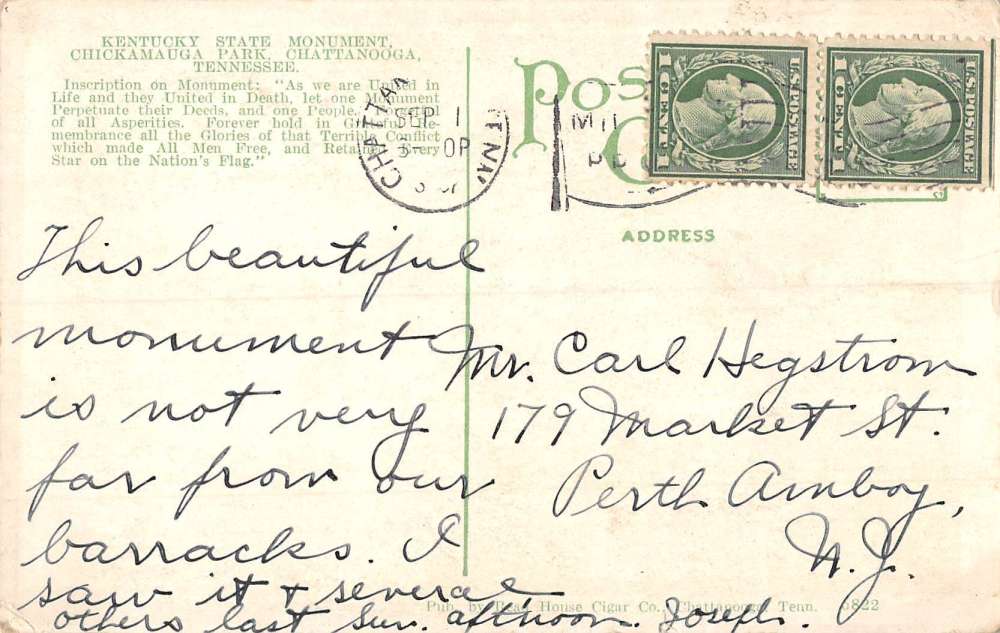 KENTUCKY STATE MONUMENT,
CHICKAMAUGA PARK, CHATTANOOGA,
TENNESSEE.
Inscription on Monument: "As we are United in
Life and they United in Death, let one Monument
Perpetuate their Deeds, and one People,
of all Asperities. Forever hold in Grateful Re-
membrance all the Glories of that Terrible Conflict
which made All Men Free, and Retain Every
Star on the Nation's Flag."
SEP 1
U.S. POSTAGE
1 ONE 1
U.S. POSTAGE
1 ONE 1
ADDRESS
This beautiful
monument
is not very
far from our
barracks. I
saw it & several
others last Sun. aft'noon. Joseph.
Mr. Carl Hegstrom
179 Market St.
Perth Amboy,
N.J.
Pub. by Read House Cigar Co., Chattanooga, Tenn.